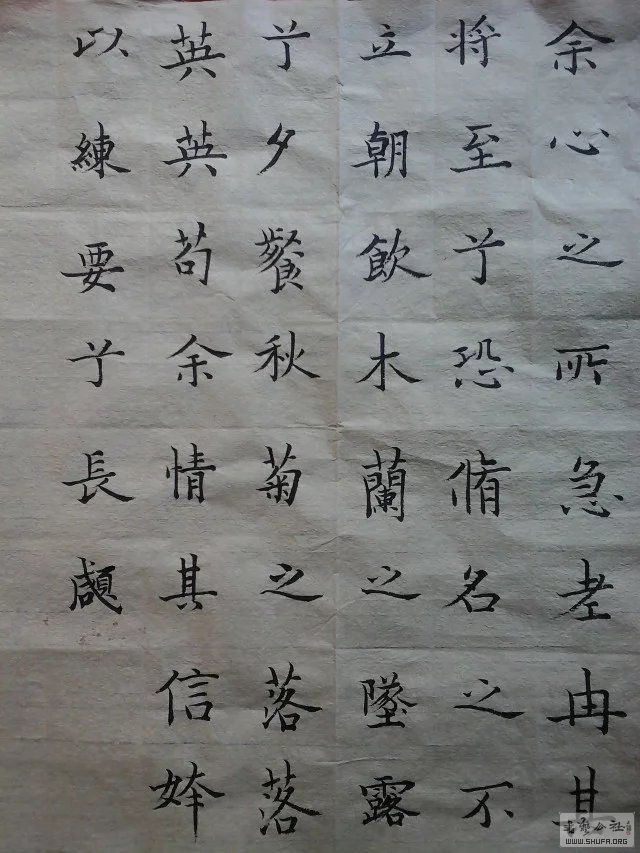 余心之所急老冉其
将至兮恐脩名之不
立朝飲木蘭之墜露
兮夕餐秋菊之落落
英英苟余情其信姱
以練要兮長顑
書藝公社
WWW.SHUFA.ORG